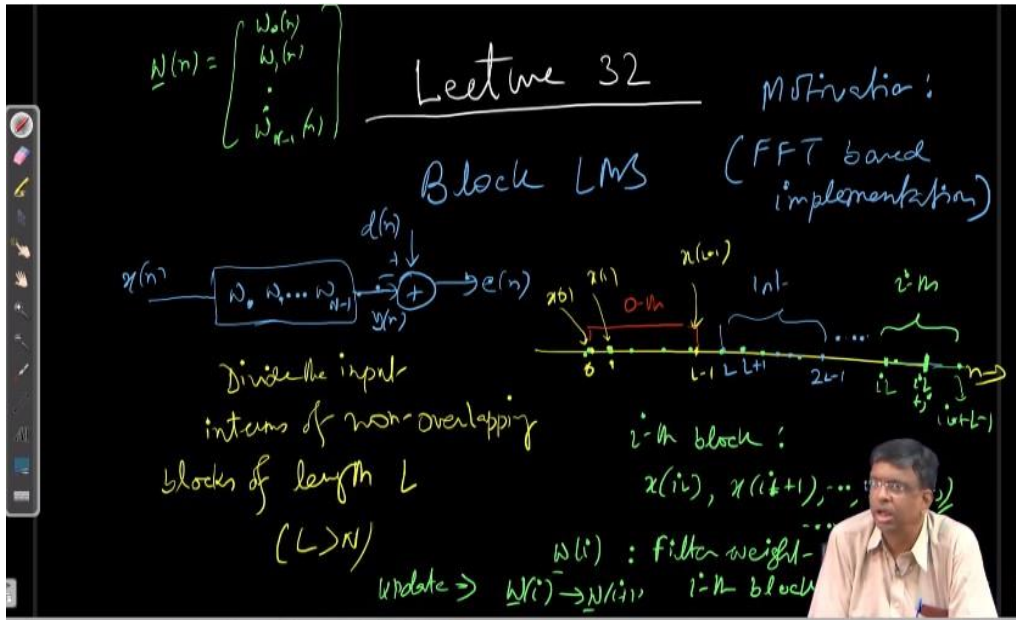 W(n) = [ w₀(n)
w₁(n)
.
.
w_{N-1}(n) ]
Lecture 32
Motivation:
(FFT based
implementation)
Block LMS
x(n)
w₀ w₁ ... w_{N-1}
y(n)
d(n)
+
-
+
e(n)
x(0)
x(1)
x(L-1)
0-th
1st
i-th
0 1 L-1 L L+1 2L-1 ..... iL iL+j iL+L-1 n
Divide the input
interms of non-overlapping
blocks of length L
(L>N)
i-th block:
x(iL), x(iL+1), ...,
W(i) : filter weight-
i-th block
update ⇒ W(i) → W(i+1)